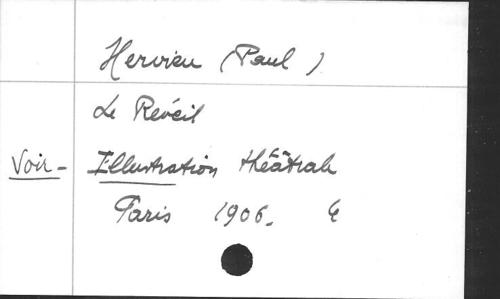 Hervieu (Paul)
Le Reveil
Voir - Illustration théâtrale
Paris 1906.